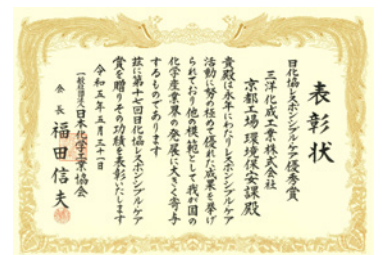 表彰状
日化協レスポンシブル・ケア優秀賞
三洋化成工業株式会社
京都工場 環境保安課殿
貴殿は永年にわたりレスポンシブル・ケア
活動に努め極めて優れた成果を挙げ
られており他の模範として我が国の
化学産業界の発展に大きく寄与
するものであります
茲に第十七回日化協レスポンシブル・ケア
賞を贈りその功績を表彰いたします
令和五年五月三十一日
一般社団法人日本化学工業協会
会長 福田信夫